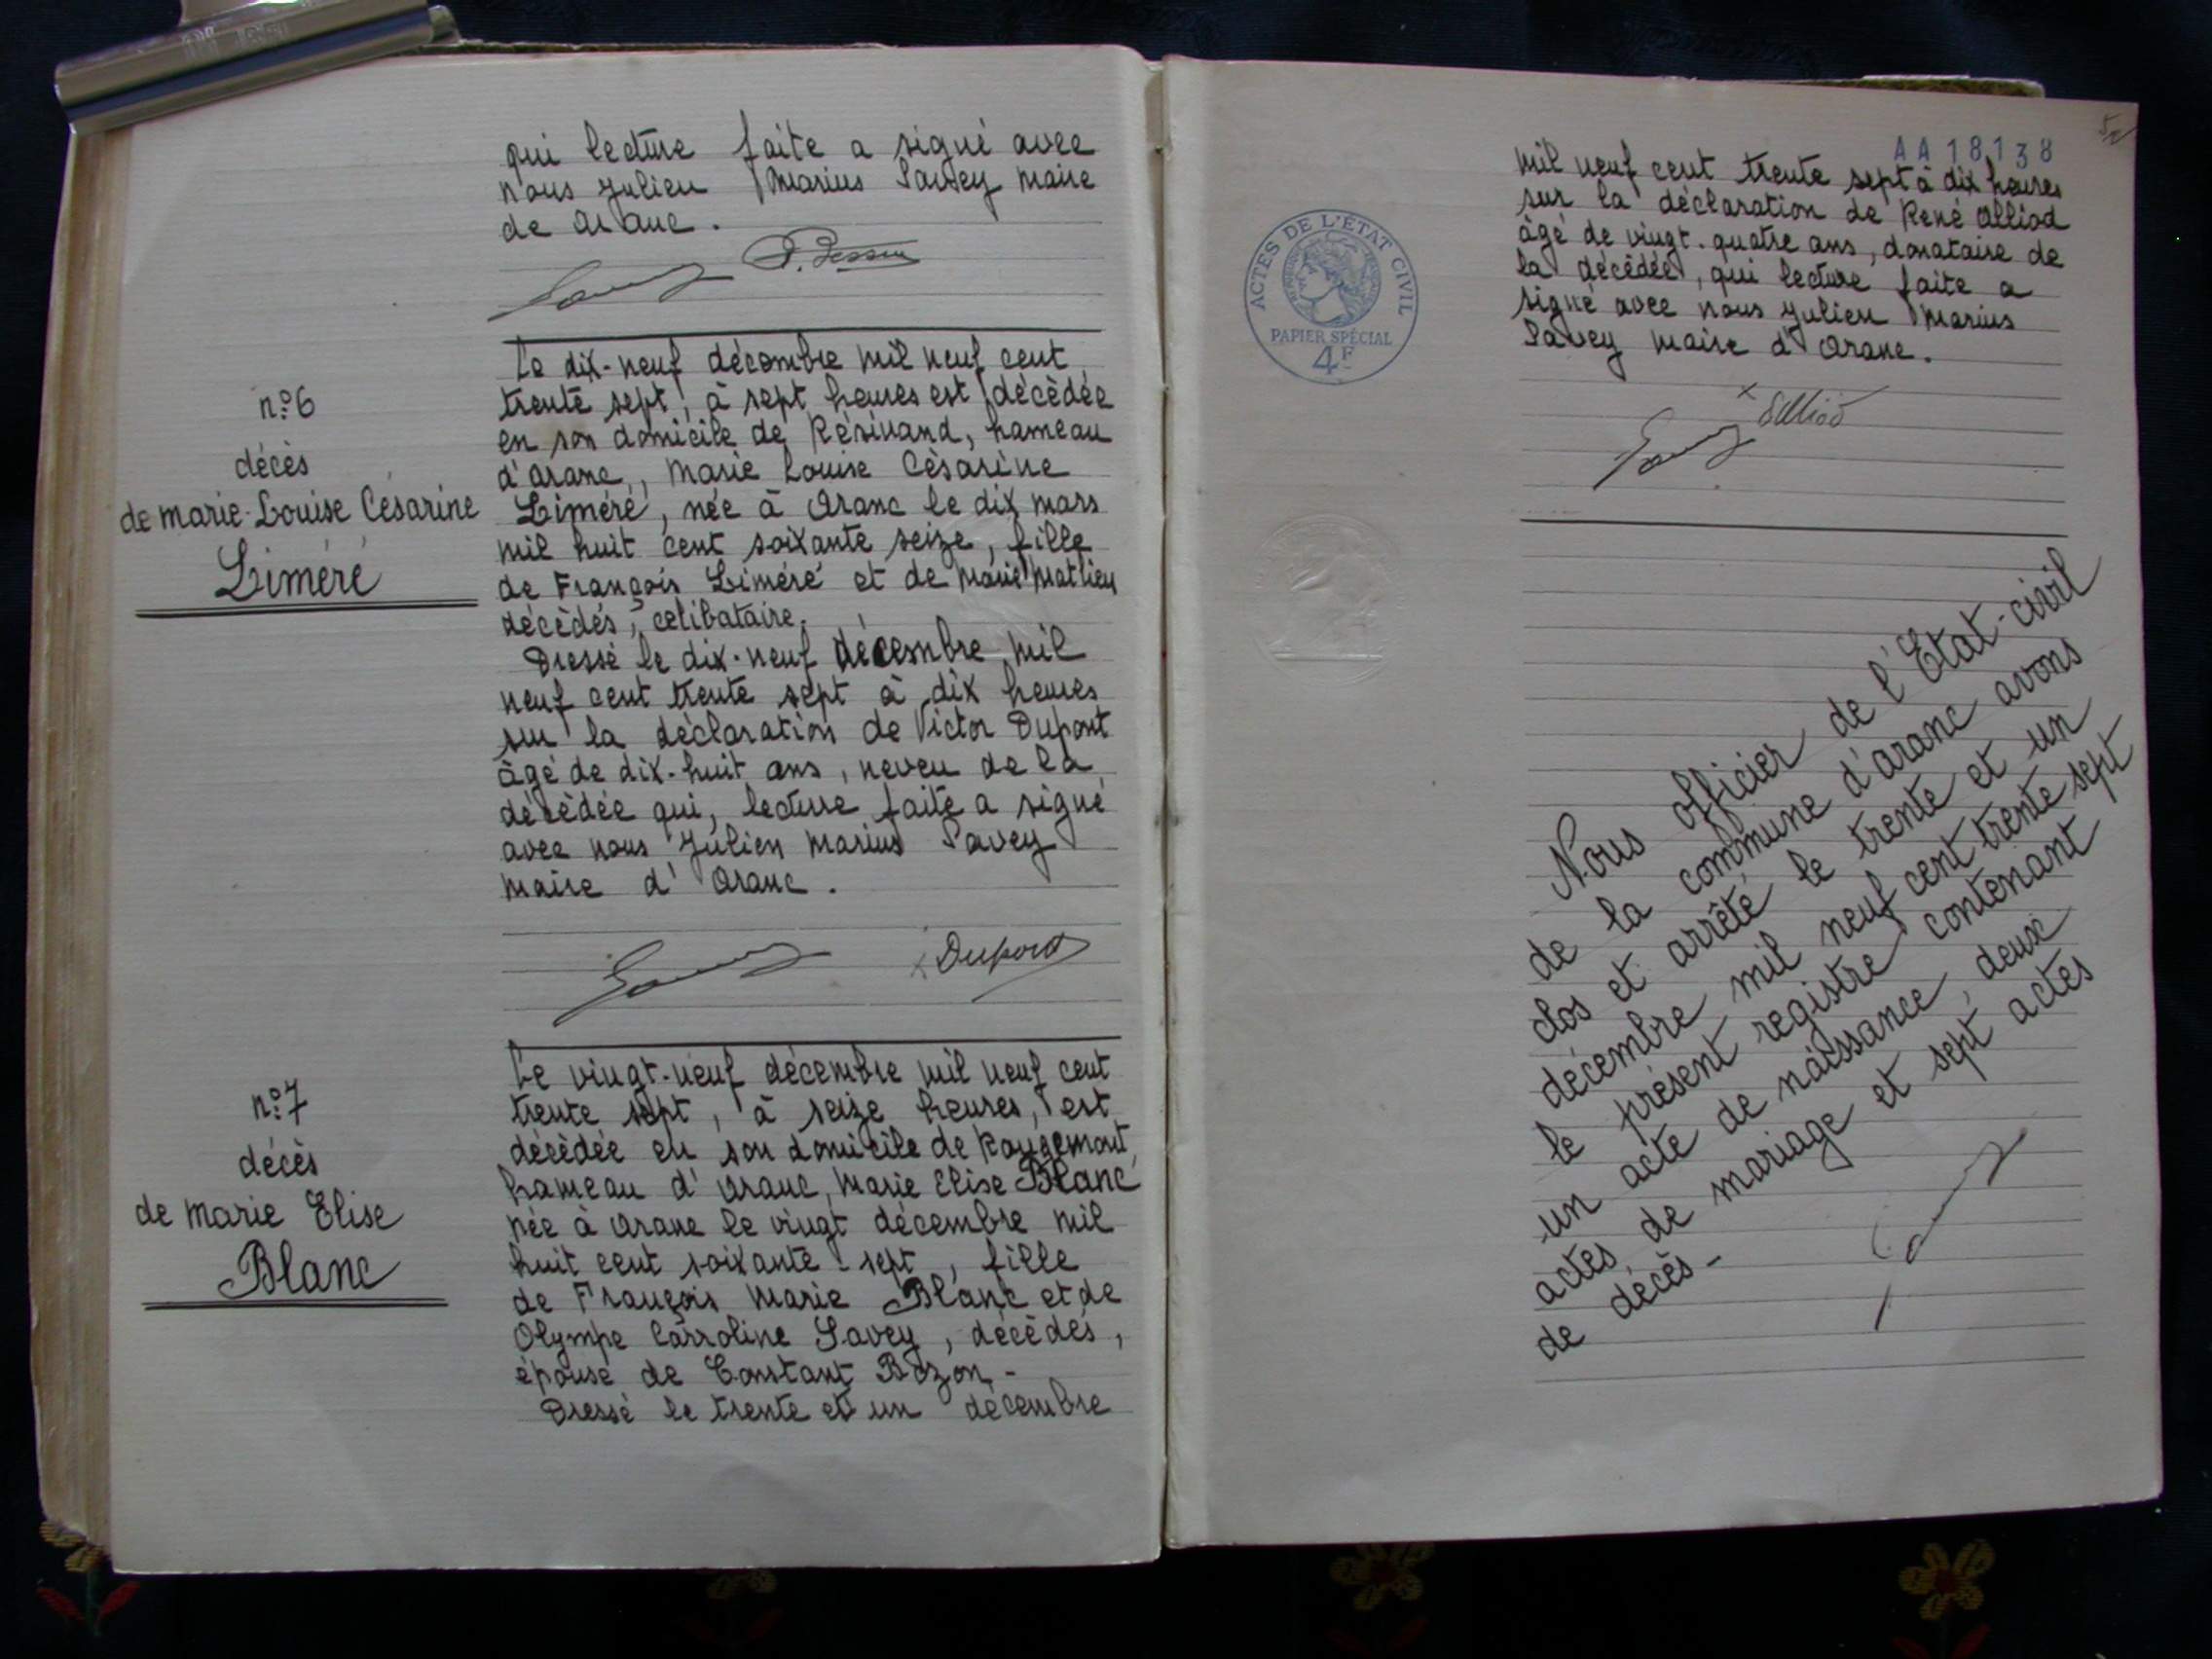 qui lecture faite a signé avec
nous Julien Marius Savey maire
de Aranc.
n:º6
décès
de Marie-Louise Césarine
Liméré
Le dix-neuf décembre mil neuf cent
trente sept, à sept heures est décédée
en son domicile de Résinand, hameau
d'Aranc, Marie Louise Césarine
Liméré, née à Aranc le dix mars
mil huit cent soixante seize, fille
de François Liméré et de Marie Mathieu
décédés, celibataire.
Dressé le dix-neuf décembre mil
neuf cent trente sept à dix heures
sur la déclaration de Victor Dupont
âgé de dix-huit ans, neveu de la
décédée qui, lecture faite a signé
avec nous Julien Marius Savey
maire d'Aranc.
Dupont
n:º7
décès
de Marie Elise
Blanc
Le vingt-neuf décembre mil neuf cent
trente sept, à seize heures, est
décédée en son domicile de Rougemont,
hameau d'Aranc, Marie Elise Blanc
née à Aranc le vingt décembre mil
huit cent soixante-sept, fille
de François Marie Blanc et de
Olympe Carroline Savey, décédés,
épouse de Constant Bozon.-
Dressé le trente et un décembre
AA18138
mil neuf cent trente sept à dix heures
sur la déclaration de René Alliod
âgé de vingt-quatre ans, donataire de
la décédée, qui lecture faite a
signé avec nous Julien Marius
Savey maire d'Aranc.
ACTES DE L'ÉTAT CIVIL
PAPIER SPÉCIAL
4F
Nous officier de l'Etat-civil
de la commune d'Aranc avons
clos et arrêté le trente et un
décembre mil neuf cent trente sept
le présent registre contenant
un acte de naissance, deux
actes de mariage et sept actes
de décès-